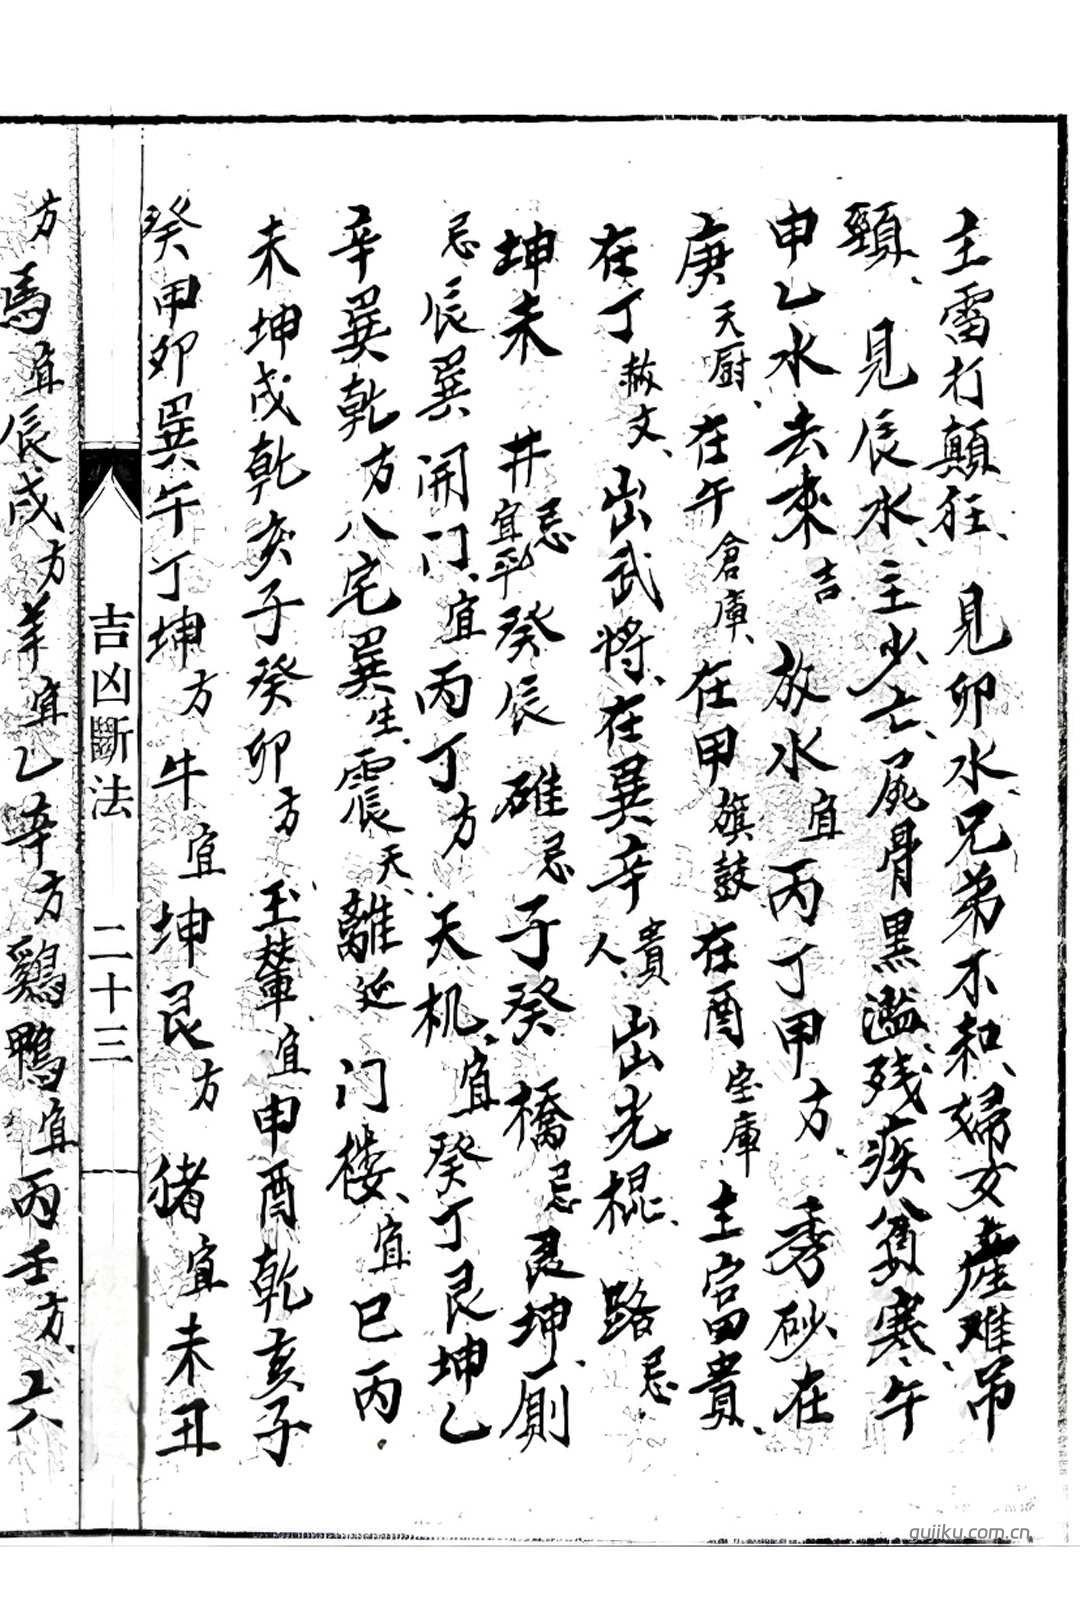 主雷打顛狂、見卯水、兄弟不和、婦女產难吊
頸、見辰水、主少亡、屍骨黑濫、残疾貧寒、午
申乙水去來吉 放水宜丙丁甲方、秀砂在
庚天厨、在午倉庫、在甲旗鼓在酉宝庫主富貴、
在丁赦文、出武將、在巽辛貴人、出光棍、路忌、
坤未 井忌宜平癸辰 碓忌子癸 橋忌艮坤、厠
忌辰巽 開门、宜丙丁方、天机、宜癸丁艮坤乙
辛巽乾方八宅巽生、震天、離延 门楼、宜巳丙、
未坤戌乾亥子癸卯方、玉輦、宜申酉乾亥子
癸甲卯巽午丁坤方 牛宜坤艮方 猪宜未丑
吉凶斷法 二十三
方馬宜辰戌方羊宜乙辛方鷄鴨宜丙壬方、
gujiku.com.cn